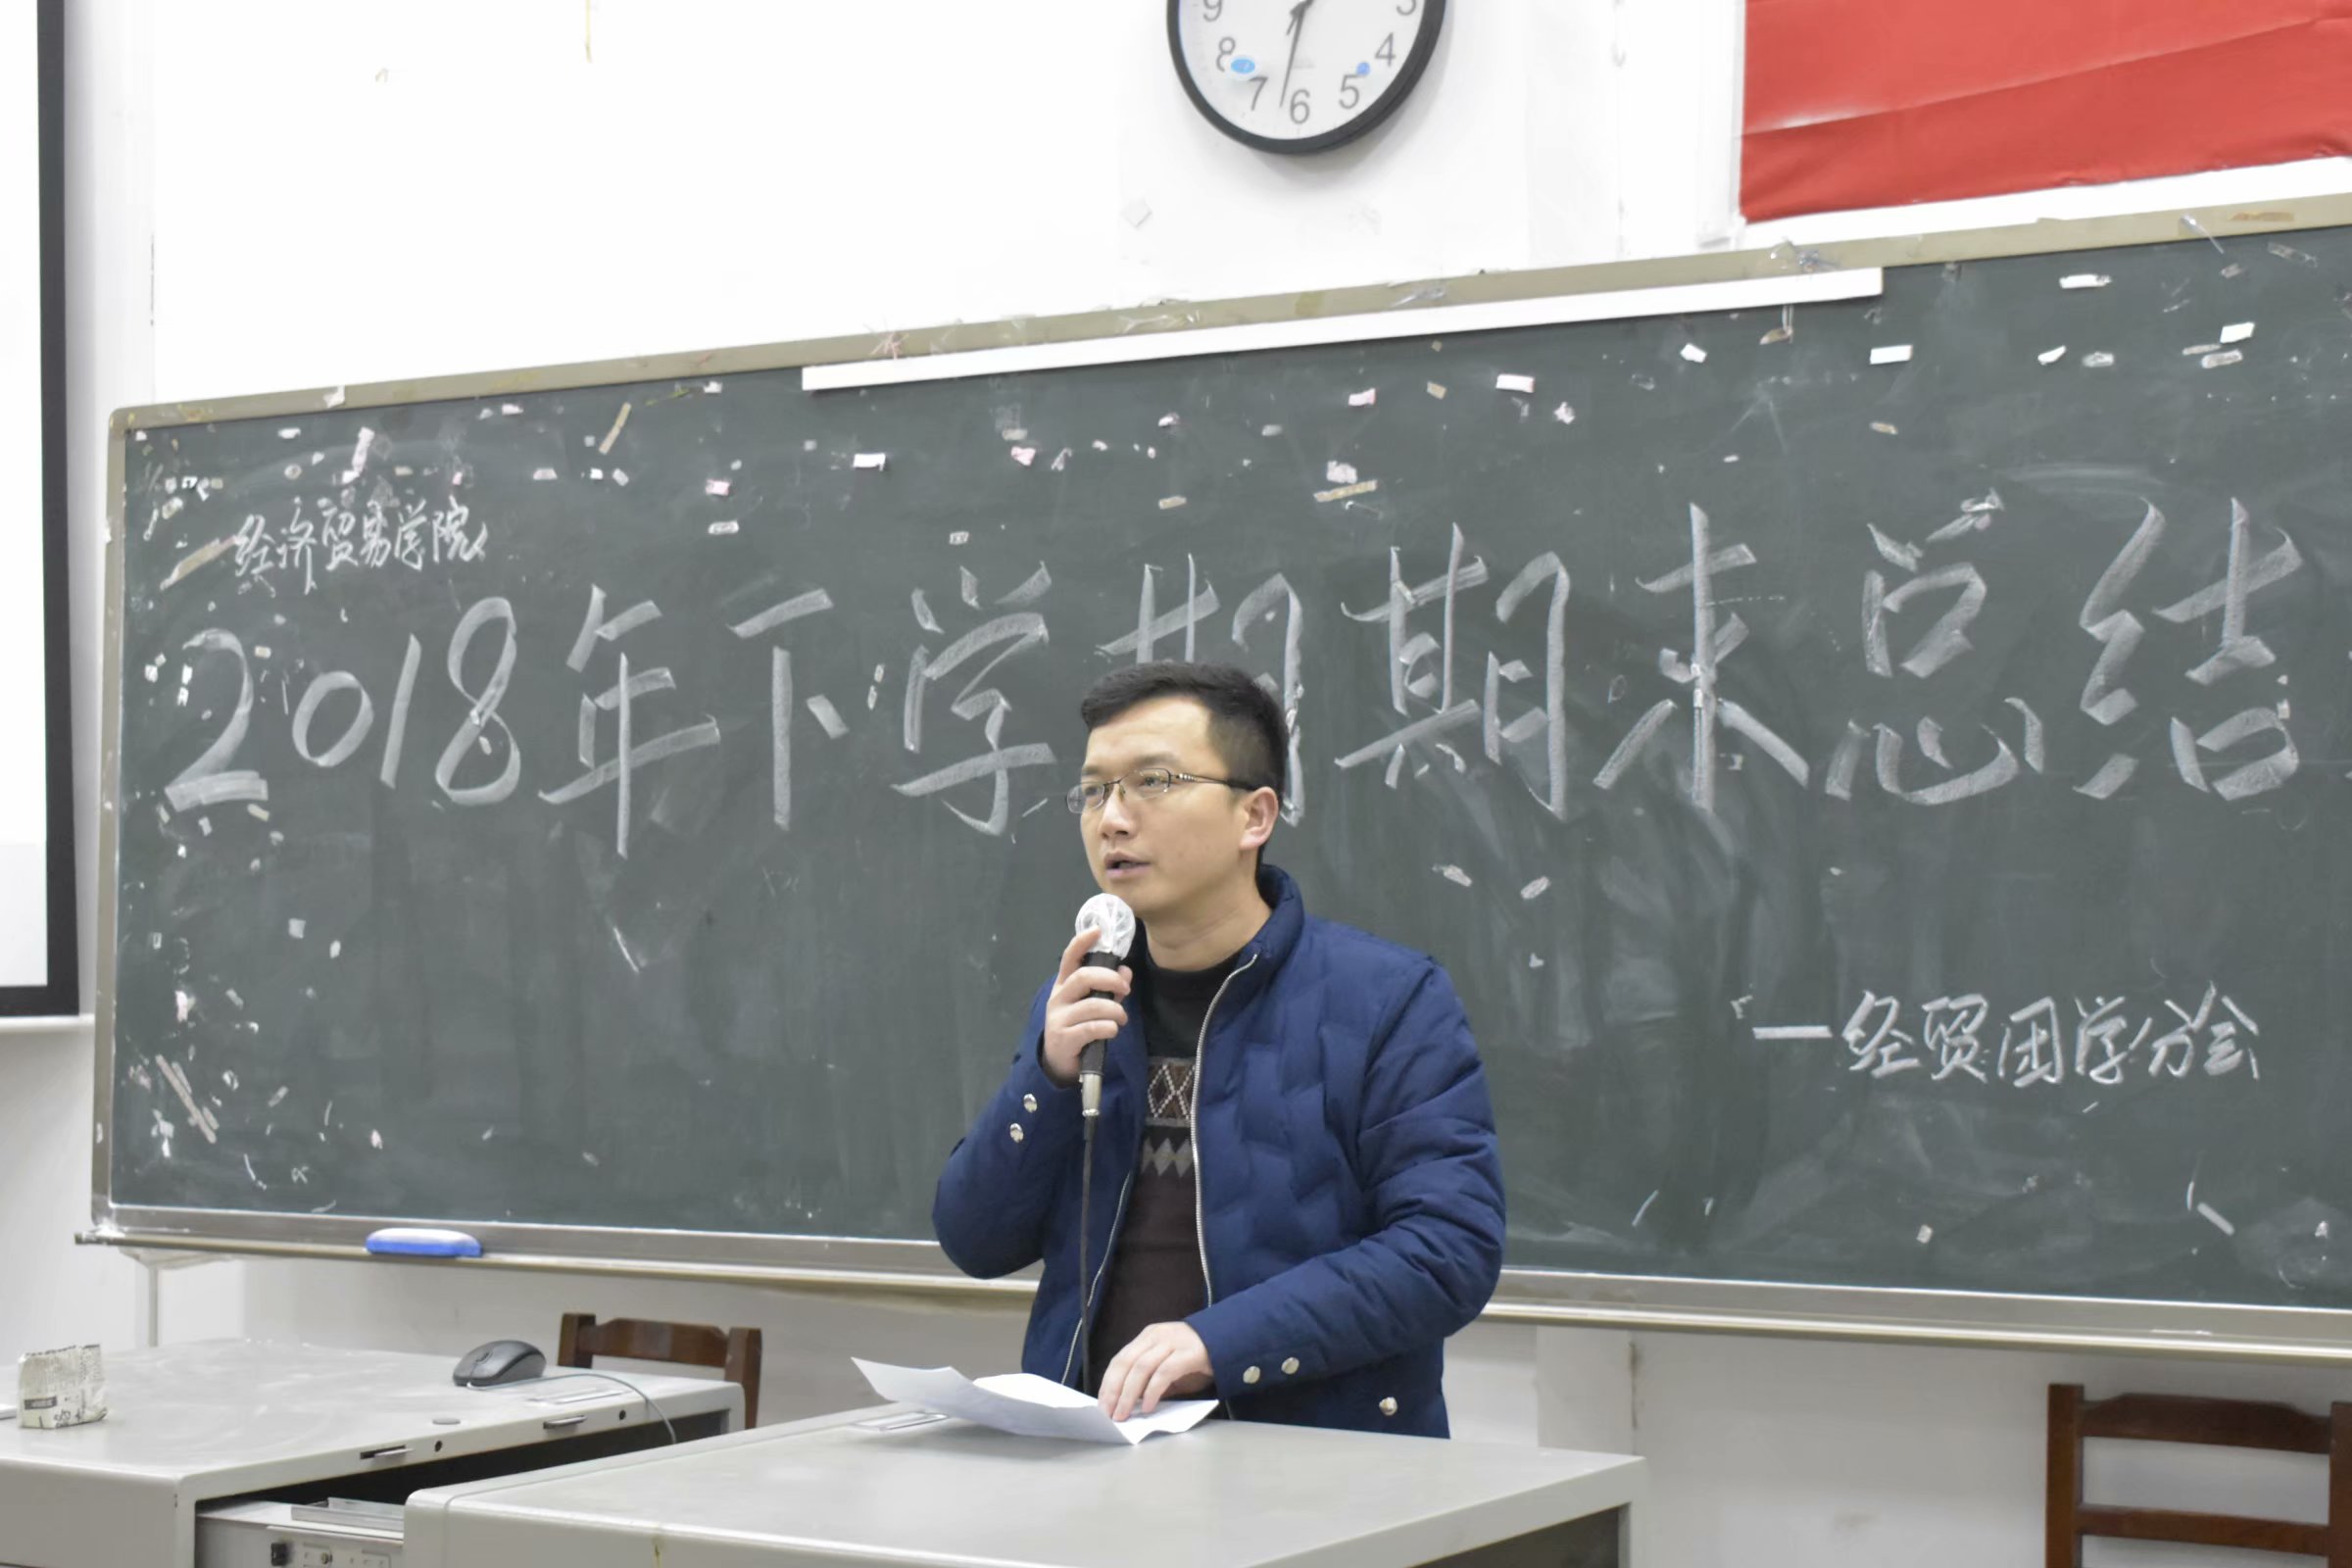 9 3
8 4
7 6 5
经济贸易学院
2018年下学期期末总结
一经贸团学分会